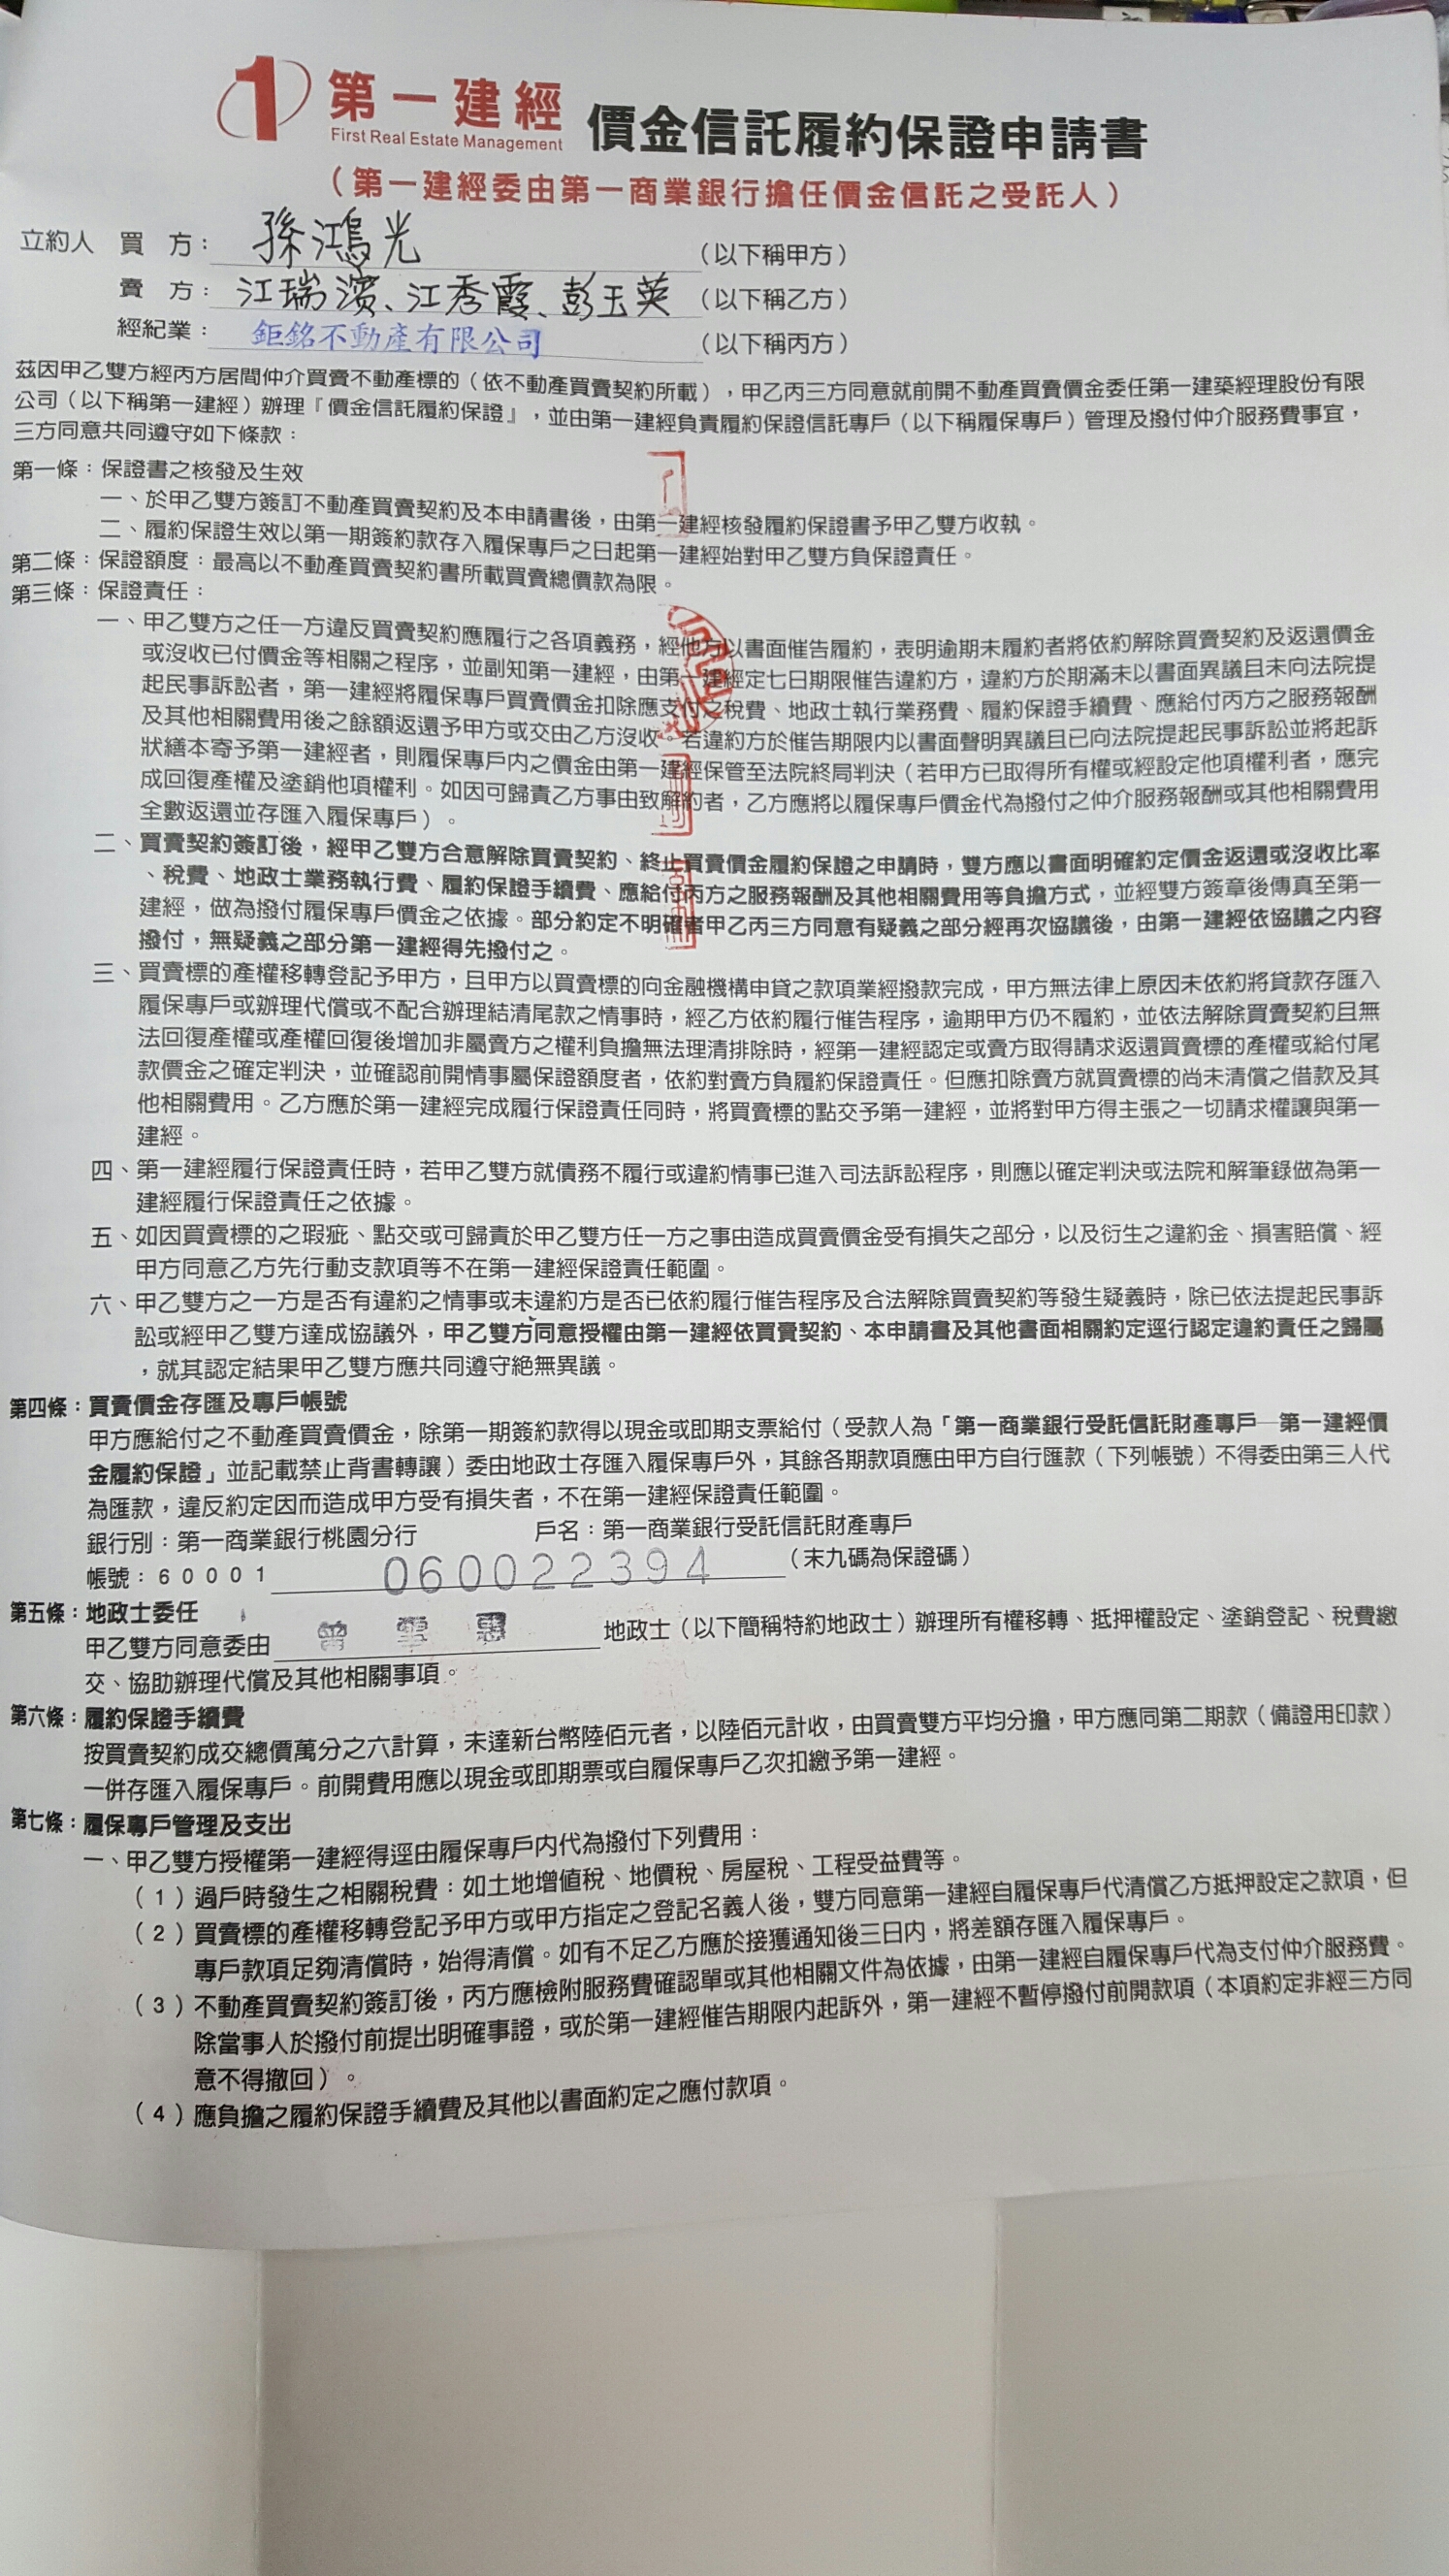 1 第一建經 價金信託履約保證申請書
First Real Estate Management
（第一建經委由第一商業銀行擔任價金信託之受託人）
立約人 買 方： 孫鴻光 （以下稱甲方）
賣 方： 江瑞濱、江秀霞、彭玉英 （以下稱乙方）
經紀業： 鉅銘不動產有限公司 （以下稱丙方）
茲因甲乙雙方經丙方居間仲介買賣不動產標的（依不動產買賣契約所載），甲乙丙三方同意就前開不動產買賣價金委任第一建築經理股份有限
公司（以下稱第一建經）辦理『價金信託履約保證』，並由第一建經負責履約保證信託專戶（以下稱履保專戶）管理及撥付仲介服務費事宜，
三方同意共同遵守如下條款：
第一條：保證書之核發及生效
一、於甲乙雙方簽訂不動產買賣契約及本申請書後，由第一建經核發履約保證書予甲乙雙方收執。
二、履約保證生效以第一期簽約款存入履保專戶之日起第一建經始對甲乙雙方負保證責任。
第二條：保證額度：最高以不動產買賣契約書所載買賣總價款為限。
第三條：保證責任：
一、甲乙雙方之任一方違反買賣契約應履行之各項義務，經他方以書面催告履約，表明逾期未履約者將依約解除買賣契約及返還價金
或沒收已付價金等相關之程序，並副知第一建經，由第一建經定七日期限催告違約方，違約方於期滿未以書面異議且未向法院提
起民事訴訟者，第一建經將履保專戶買賣價金扣除應支付之稅費、地政士執行業務費、履約保證手續費、應給付丙方之服務報酬
及其他相關費用後之餘額返還予甲方或交由乙方沒收。若違約方於催告期限內以書面聲明異議且已向法院提起民事訴訟並將起訴
狀繕本寄予第一建經者，則履保專戶內之價金由第一建經保管至法院終局判決（若甲方已取得所有權或經設定他項權利者，應完
成回復產權及塗銷他項權利。如因可歸責乙方事由致解約者，乙方應將以履保專戶價金代為撥付之仲介服務報酬或其他相關費用
全數返還並存匯入履保專戶）。
二、買賣契約簽訂後，經甲乙雙方合意解除買賣契約、終止買賣價金履約保證之申請時，雙方應以書面明確約定價金返還或沒收比率
、稅費、地政士業務執行費、履約保證手續費、應給付丙方之服務報酬及其他相關費用等負擔方式，並經雙方簽章後傳真至第一
建經，做為撥付履保專戶價金之依據。部分約定不明確者甲乙丙三方同意有疑義之部分經再次協議後，由第一建經依協議之內容
撥付，無疑義之部分第一建經得先撥付之。
三、買賣標的產權移轉登記予甲方，且甲方以買賣標的向金融機構申貸之款項業經撥款完成，甲方無法律上原因未依約將貸款存匯入
履保專戶或辦理代償或不配合辦理結清尾款之情事時，經乙方依約履行催告程序，逾期甲方仍不履約，並依法解除買賣契約且無
法回復產權或產權回復後增加非屬賣方之權利負擔無法理清排除時，經第一建經認定或賣方取得請求返還買賣標的產權或給付尾
款價金之確定判決，並確認前開情事屬保證額度者，依約對賣方負履約保證責任。但應扣除賣方就買賣標的尚未清償之借款及其
他相關費用。乙方應於第一建經完成履行保證責任同時，將買賣標的點交予第一建經，並將對甲方得主張之一切請求權讓與第一
建經。
四、第一建經履行保證責任時，若甲乙雙方就債務不履行或違約情事已進入司法訴訟程序，則應以確定判決或法院和解筆錄做為第一
建經履行保證責任之依據。
五、如因買賣標的之瑕疵、點交或可歸責於甲乙雙方任一方之事由造成買賣價金受有損失之部分，以及衍生之違約金、損害賠償、經
甲方同意乙方先行動支款項等不在第一建經保證責任範圍。
六、甲乙雙方之一方是否有違約之情事或未違約方是否已依約履行催告程序及合法解除買賣契約等發生疑義時，除已依法提起民事訴
訟或經甲乙雙方達成協議外，甲乙雙方同意授權由第一建經依買賣契約、本申請書及其他書面相關約定逕行認定違約責任之歸屬
，就其認定結果甲乙雙方應共同遵守絕無異議。
第四條：買賣價金存匯及專戶帳號
甲方應給付之不動產買賣價金，除第一期簽約款得以現金或即期支票給付（受款人為「第一商業銀行受託信託財產專戶—第一建經價
金履約保證」並記載禁止背書轉讓）委由地政士存匯入履保專戶外，其餘各期款項應由甲方自行匯款（下列帳號）不得委由第三人代
為匯款，違反約定因而造成甲方受有損失者，不在第一建經保證責任範圍。
銀行別：第一商業銀行桃園分行 戶名：第一商業銀行受託信託財產專戶
帳號：60001 060022394 （末九碼為保證碼）
第五條：地政士委任
甲乙雙方同意委由 曾 惠 地政士（以下簡稱特約地政士）辦理所有權移轉、抵押權設定、塗銷登記、稅費繳
交、協助辦理代償及其他相關事項。
第六條：履約保證手續費
按買賣契約成交總價萬分之六計算，未達新台幣陸佰元者，以陸佰元計收，由買賣雙方平均分擔，甲方應同第二期款（備證用印款）
一併存匯入履保專戶。前開費用應以現金或即期票或自履保專戶乙次扣繳予第一建經。
第七條：履保專戶管理及支出
一、甲乙雙方授權第一建經得逕由履保專戶內代為撥付下列費用：
（1）過戶時發生之相關稅費：如土地增值稅、地價稅、房屋稅、工程受益費等。
（2）買賣標的產權移轉登記予甲方或甲方指定之登記名義人後，雙方同意第一建經自履保專戶代清償乙方抵押設定之款項，但
專戶款項足夠清償時，始得清償。如有不足乙方應於接獲通知後三日內，將差額存匯入履保專戶。
（3）不動產買賣契約簽訂後，丙方應檢附服務費確認單或其他相關文件為依據，由第一建經自履保專戶代為支付仲介服務費。
除當事人於撥付前提出明確事證，或於第一建經催告期限內起訴外，第一建經不暫停撥付前開款項（本項約定非經三方同
意不得撤回）。
（4）應負擔之履約保證手續費及其他以書面約定之應付款項。